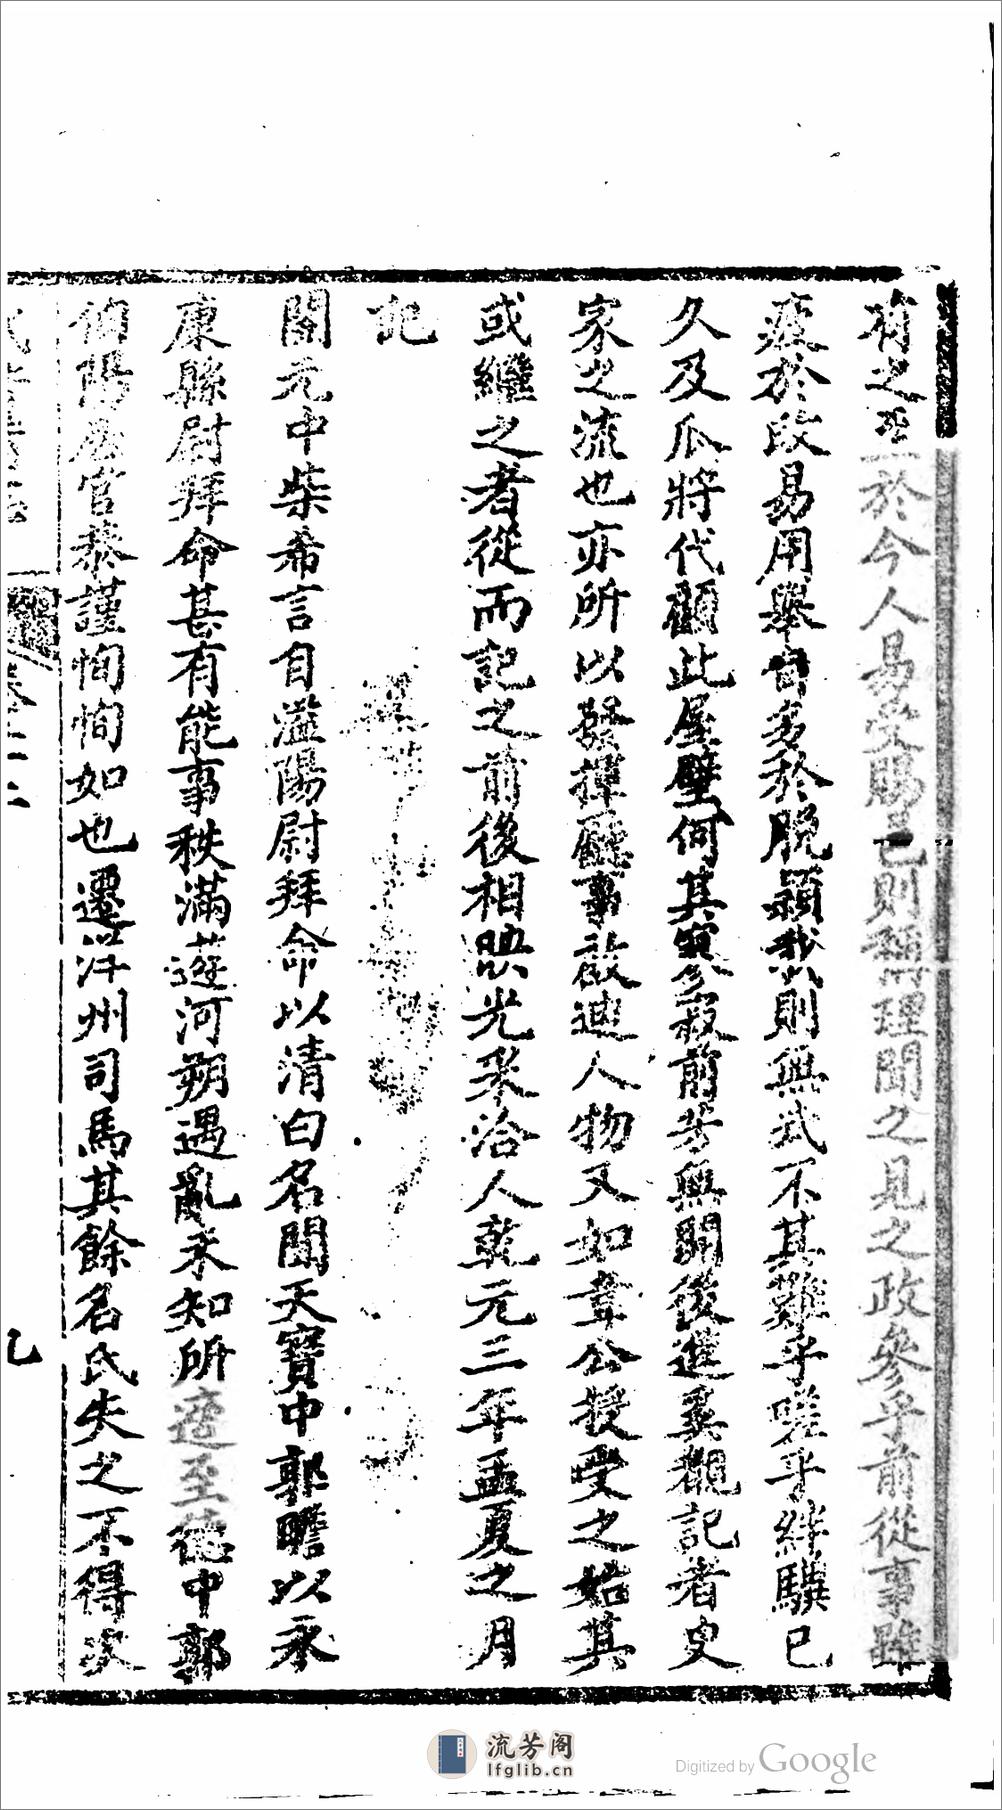 有之至於今人易受賜之已則稱理聞之見之政參乎前從事雖
疲於政易用舉自多於脱穎我則無武不其難乎嗟乎絆驥已
久及瓜將代顧此屋壁何其寥寂前芳無聞後進奚觀記者史
家之流也亦所以發揮廳事啟迪人物又如韋公授受之始其
或繼之者從而記之前後相映光釆洽人乾元三年孟夏之月
記
開元中柴希言自溢陽尉拜命以清白名聞天寶中郭瞻以永
康縣尉拜命甚有能事秩滿遊河朔遇亂未知所適至德中郭
伯陽居官恭謹恂恂如也遷洋州司馬其餘名氏失之不得次
流芳阁
lfglib.cn
Digitized by Google